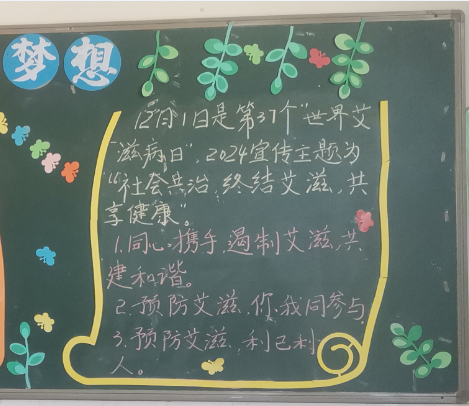 梦想
12月1日是第37个“世界艾
滋病日”,2024宣传主题为
“社会共治,终结艾滋,共
享健康”。
1.同心携手,遏制艾滋,共
建和谐。
2.预防艾滋,你我同参与
3.预防艾滋,利己利
人。